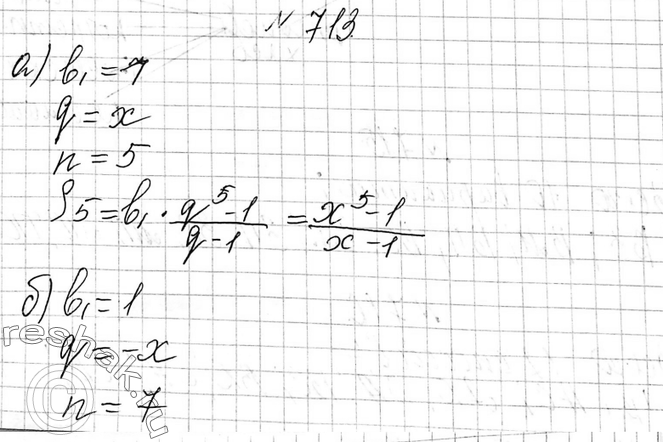 № 713
а) b₁ = 1
q = x
n = 5
S₅ = b₁ · (q⁵ - 1)/(q - 1) = (x⁵ - 1)/(x - 1)
б) b₁ = 1
q = -x
n = 7
reshak.ru